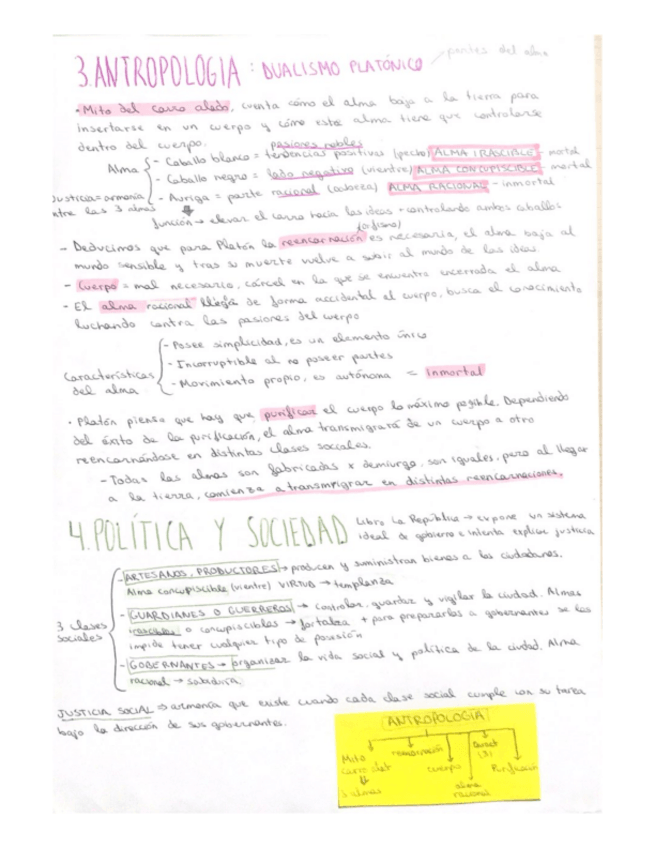 3.ANTROPOLOGIA : DUALISMO PLATÓNICO partes del alma
• Mito del carro alado, cuenta cómo el alma bajo a la tierra para
insertarse en un cuerpo y cómo esta alma tiene que controlarse
dentro del cuerpo.
pasiones nobles
Alma
- Caballo blanco = tendencias positivas (pecho) ALMA IRASCIBLE - mortal
- Caballo negro = lado negativo (vientre) ALMA CONCUPISCIBLE - mortal
- Auriga = parte racional (cabeza) ALMA RACIONAL - inmortal
Justicia = armonía
ntre las 3 almas
función → elevar el carro hacia las ideas - controlando ambos caballos
(orfismo)
- Deducimos que para Platón la reencarnación es necesaria, el alma baja al
mundo sensible y tras su muerte vuelve a subir al mundo de las ideas.
- Cuerpo = mal necesario, cárcel en la que se encuentra encerrada el alma
- El alma racional llega de forma accidental al cuerpo, busca el conocimiento
luchando contra las pasiones del cuerpo
Características
del alma
- Posee simplicidad, es un elemento único
- Incorruptible al no poseer partes
- Movimiento propio, es autónoma = Inmortal
• Platón piensa que hay que purificar el cuerpo lo máximo posible. Dependiendo
del éxito de la purificación, el alma transmigrará de un cuerpo a otro
reencarnándose en distintas clases sociales.
- Todas las almas son fabricadas x demiurgo, son iguales, pero al llegar
a la tierra, comienza a transmigrar en distintas reencarnaciones.
4.POLÍTICA Y SOCIEDAD Libro La República → expone un sistema
ideal de gobierno e intenta explicar justicia
3 clases
sociales
- ARTESANOS, PRODUCTORES → producen y suministran bienes a los ciudadanos.
Alma concupiscible (vientre) VIRTUD → templanza
- GUARDIANES O GUERREROS → controlar, guardar y vigilar la ciudad. Almas
irascibles o concupiscibles → fortaleza + para prepararlos a gobernantes se les
impide tener cualquier tipo de posesión
- GOBERNANTES → organizar la vida social y política de la ciudad. Alma
racional → sabiduría.
JUSTICIA SOCIAL ⇒ armonía que existe cuando cada clase social cumple con su tarea
bajo la dirección de sus gobernantes.
ANTROPOLOGIA
Mito
3 almas
cuerpo
(3)
alma
racional
Purificación